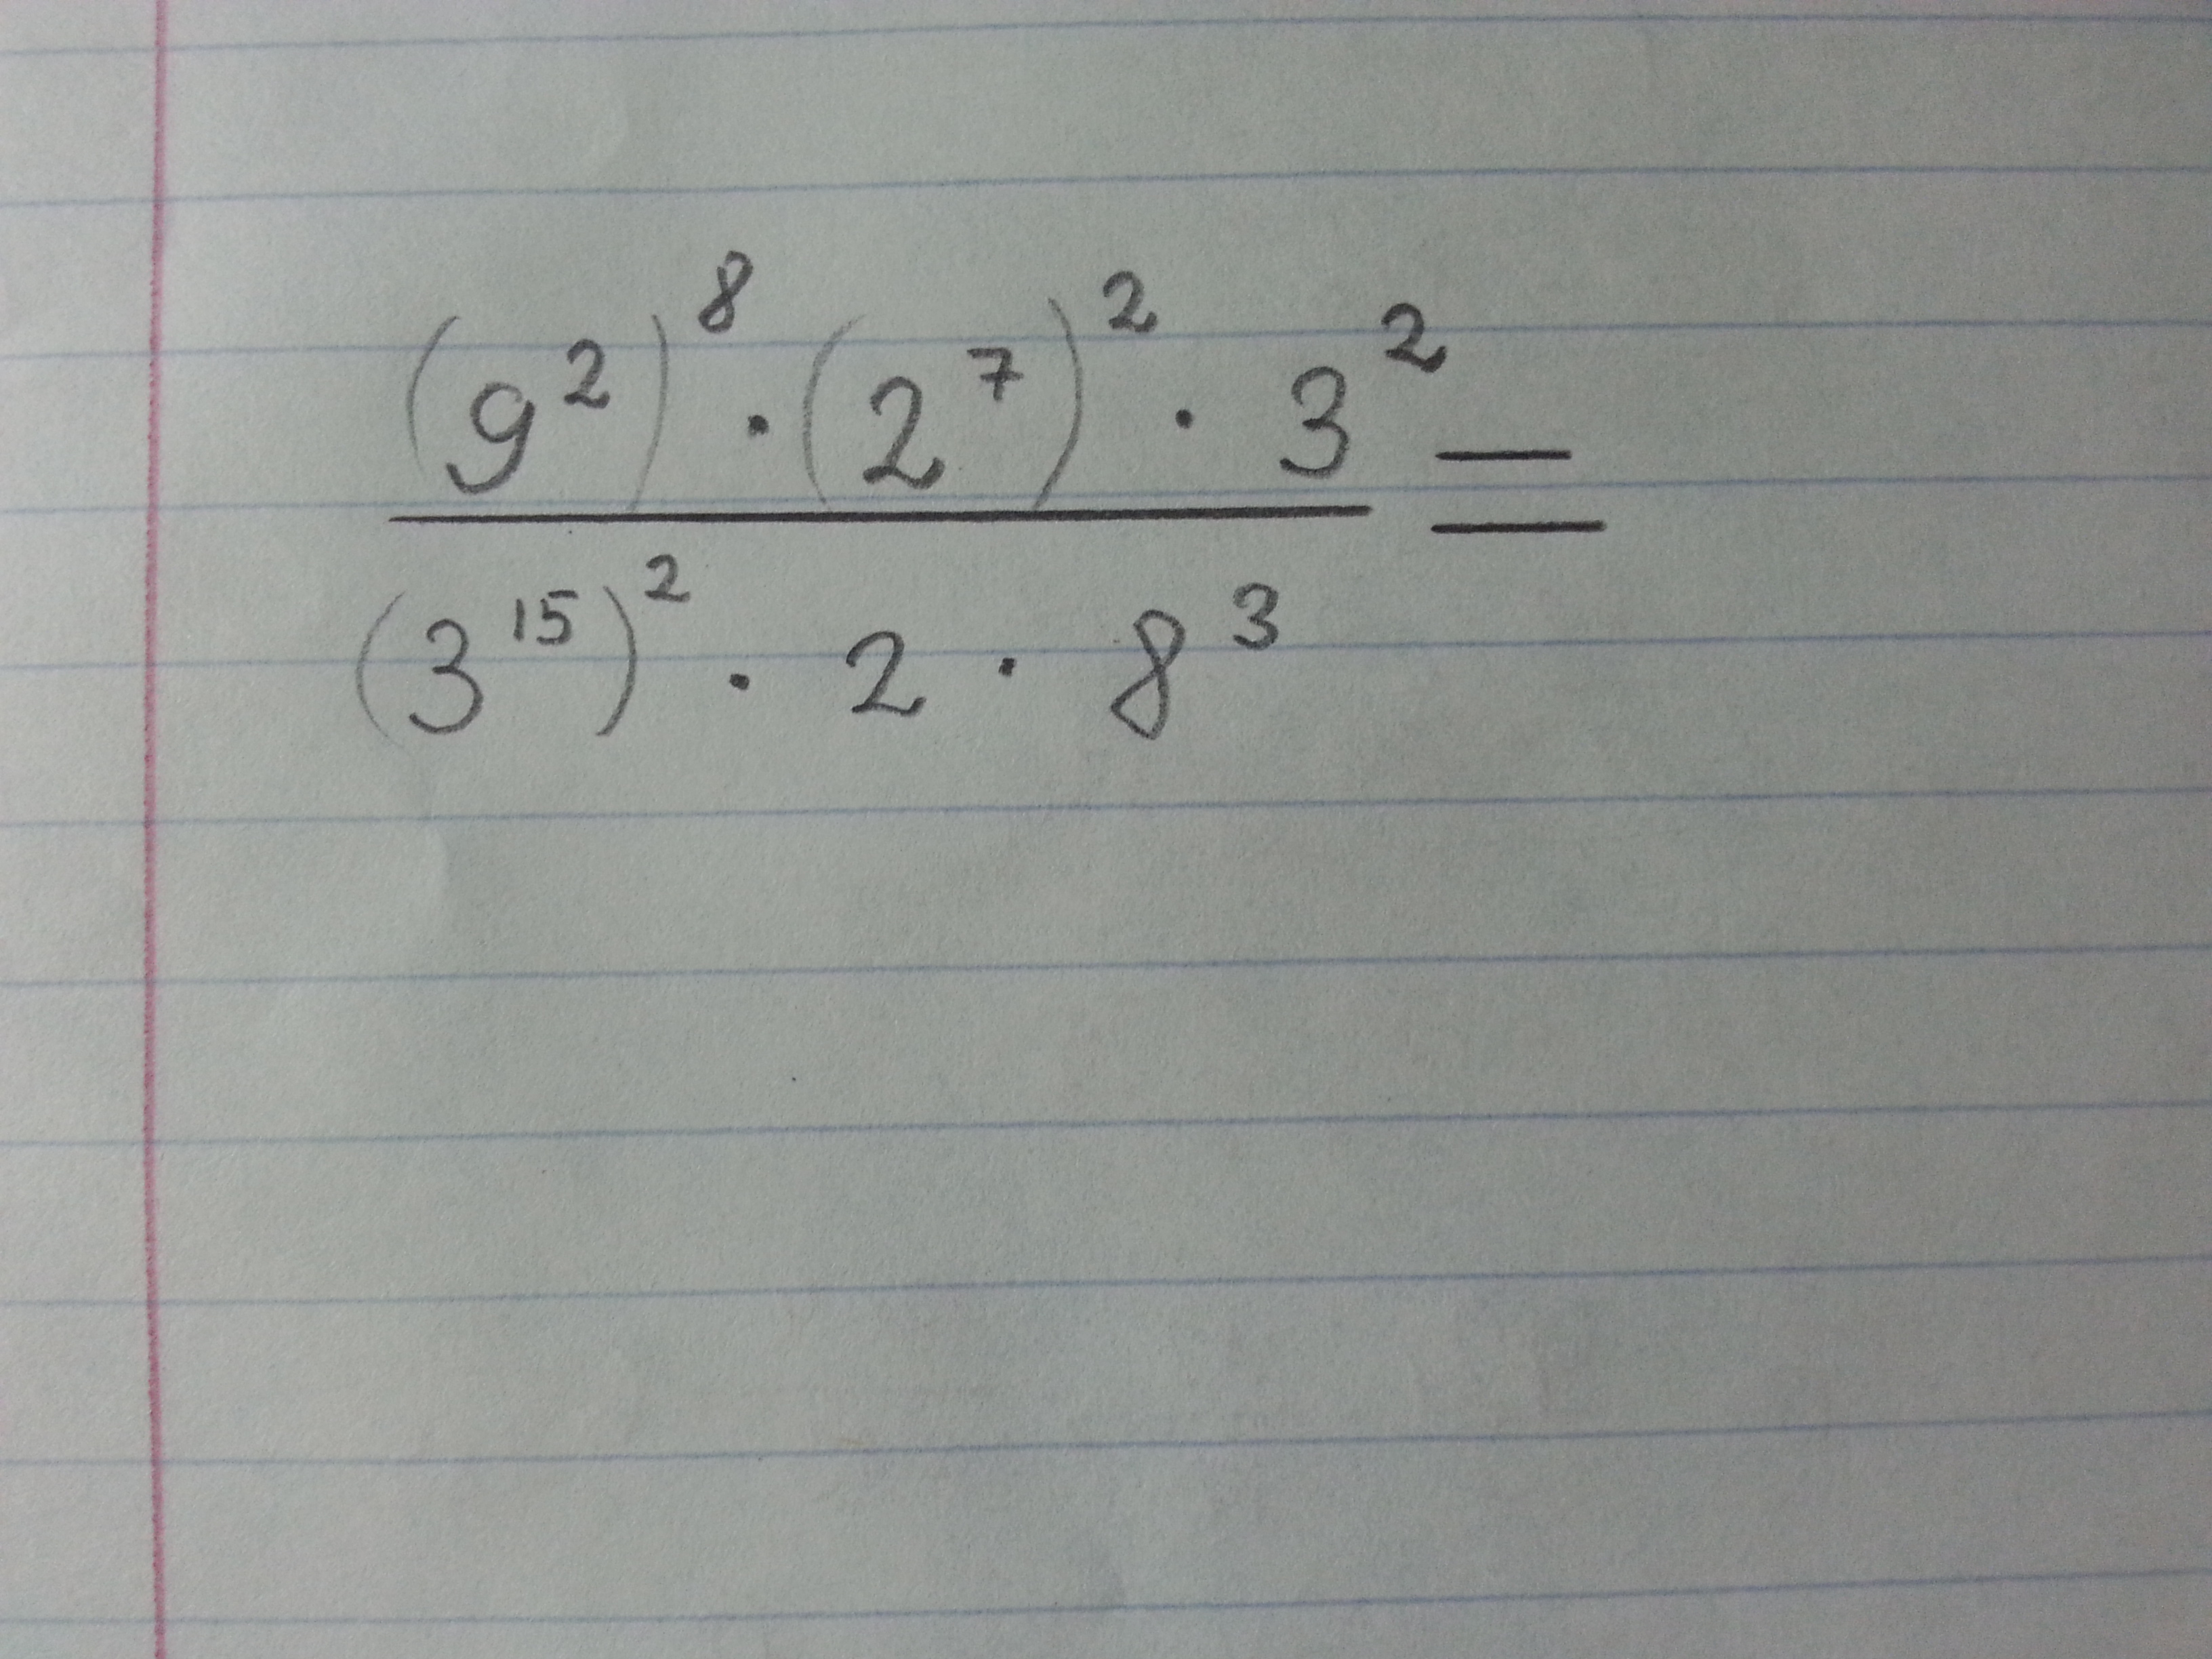 (9²)⁸ · (2⁷)² · 3² =
(3¹⁵)² · 2 · 8³